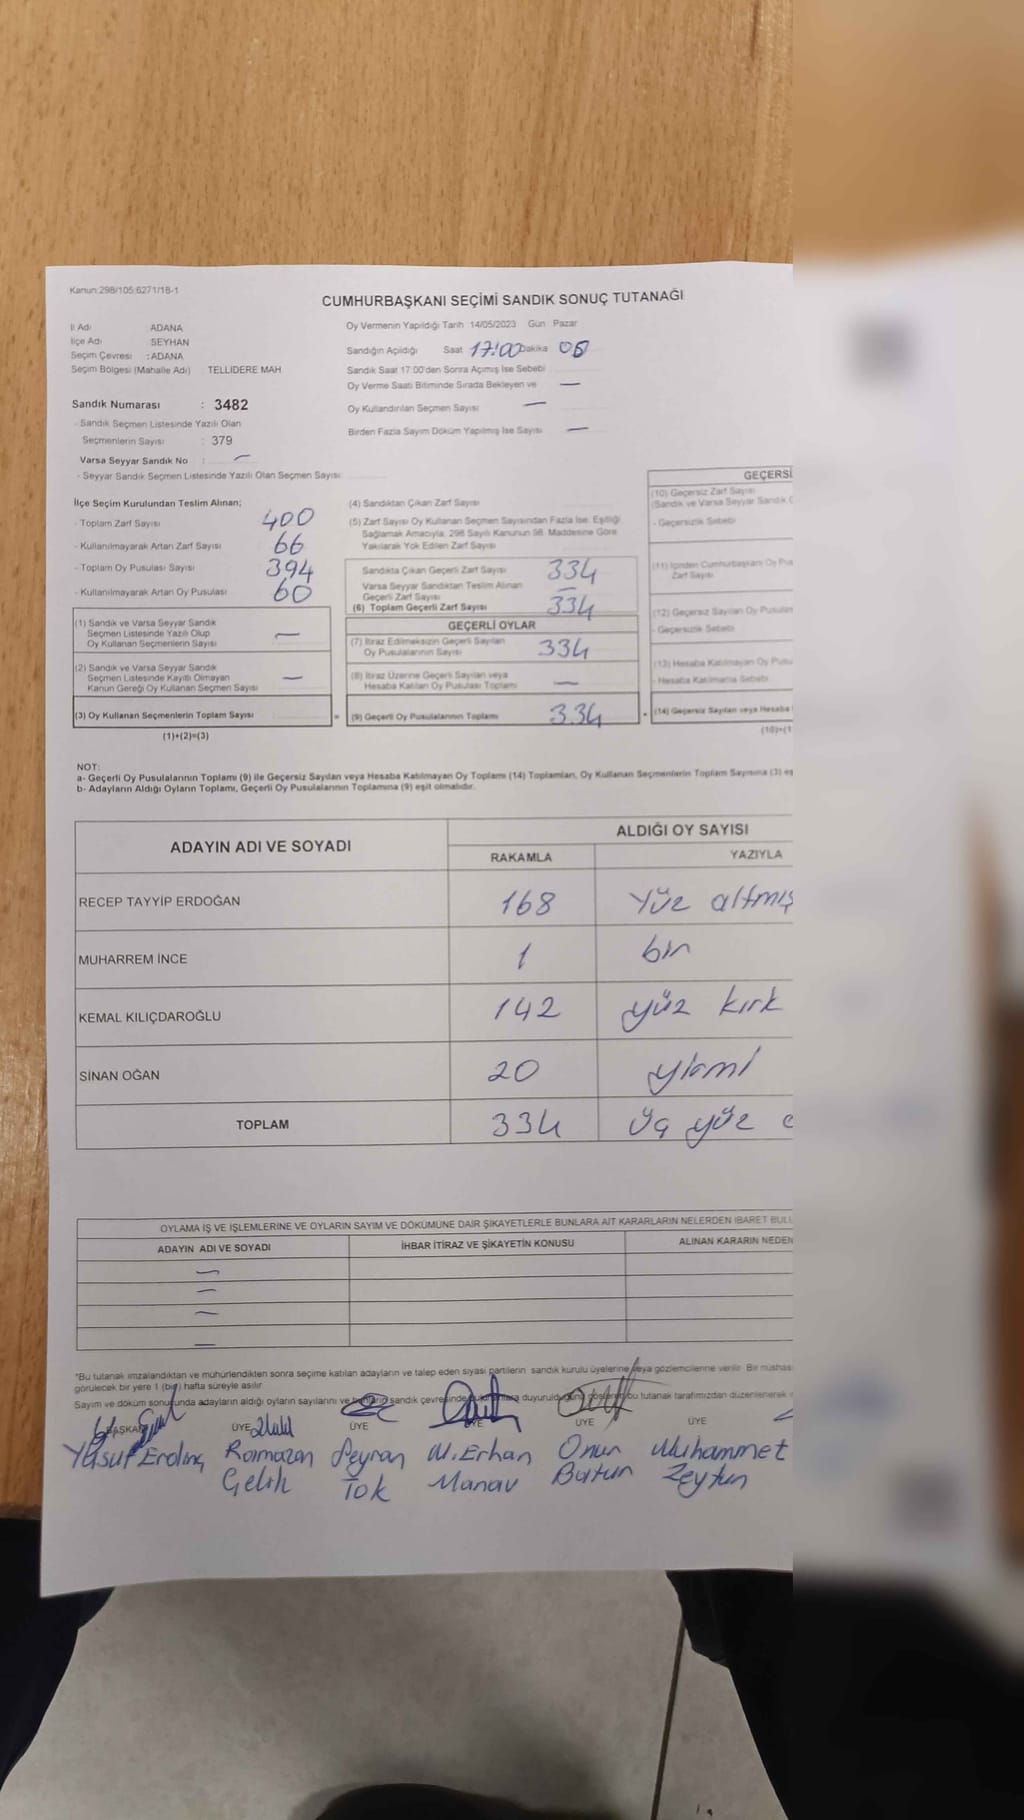 Kanun:298/105;6271/18-1
CUMHURBAŞKANI SEÇİMİ SANDIK SONUÇ TUTANAĞI
İl Adı : ADANA
İlçe Adı : SEYHAN
Seçim Çevresi : ADANA
Seçim Bölgesi (Mahalle Adı) TELLIDERE MAH
Sandık Numarası : 3482
- Sandık Seçmen Listesinde Yazılı Olan
Seçmenlerin Sayısı : 379
Varsa Seyyar Sandık No : —
- Seyyar Sandık Seçmen Listesinde Yazılı Olan Seçmen Sayısı
Oy Vermenin Yapıldığı Tarih 14/05/2023 Gün Pazar
Sandığın Açıldığı Saat 17:00 Dakika 05
Sandık Saat 17:00'den Sonra Açımış İse Sebebi
Oy Verme Saati Bitiminde Sırada Bekleyen ve —
Oy Kullandırılan Seçmen Sayısı —
Birden Fazla Sayım Döküm Yapılmış İse Sayısı —
İlçe Seçim Kurulundan Teslim Alınan;
- Toplam Zarf Sayısı 400
- Kullanılmayarak Artan Zarf Sayısı 66
- Toplam Oy Pusulası Sayısı 394
- Kullanılmayarak Artan Oy Pusulası 60
(1) Sandık ve Varsa Seyyar Sandık
Seçmen Listesinde Yazılı Olup
Oy Kullanan Seçmenlerin Sayısı —
(2) Sandık ve Varsa Seyyar Sandık
Seçmen Listesinde Kayıtlı Olmayan
Kanun Gereği Oy Kullanan Seçmen Sayısı —
(3) Oy Kullanan Seçmenlerin Toplam Sayısı =
(1)+(2)=(3)
(4) Sandıktan Çıkan Zarf Sayısı
(5) Zarf Sayısı Oy Kullanan Seçmen Sayısından Fazla İse; Eşitliği
Sağlamak Amacıyla, 298 Sayılı Kanunun 98. Maddesine Göre
Yakılarak Yok Edilen Zarf Sayısı
Sandıkta Çıkan Geçerli Zarf Sayısı 334
Varsa Seyyar Sandıktan Teslim Alınan
Geçerli Zarf Sayısı —
(6) Toplam Geçerli Zarf Sayısı 334
GEÇERLİ OYLAR
(7) İtiraz Edilmeksizin Geçerli Sayılan
Oy Pusulalarının Sayısı 334
(8) İtiraz Üzerine Geçerli Sayılan veya
Hesaba Katılan Oy Pusulası Toplamı —
(9) Geçerli Oy Pusulalarının Toplamı 334
GEÇERSİ
(10) Geçersiz Zarf Sayısı
(Sandık ve Varsa Seyyar Sandık
- Geçersizlik Sebebi
(11) İçinden Cumhurbaşkanı Oy
Zarf Sayısı
(12) Geçersiz Sayılan Oy
- Geçersizlik Sebebi
(13) Hesaba Katılmayan Oy
- Hesaba Katılmama Sebebi
(14) Geçersiz Sayılan veya Hesaba
NOT:
a- Geçerli Oy Pusulalarının Toplamı (9) ile Geçersiz Sayılan veya Hesaba Katılmayan Oy Toplamı (14) Toplamları, Oy Kullanan Seçmenlerin Toplam Sayısına (3) eş
b- Adayların Aldığı Oyların Toplamı, Geçerli Oy Pusulalarının Toplamına (9) eşit olmalıdır.
ADAYIN ADI VE SOYADI ALDIĞI OY SAYISI
RAKAMLA YAZIYLA
RECEP TAYYİP ERDOĞAN 168 Yüz altmış
MUHARREM İNCE 1 bir
KEMAL KILIÇDAROĞLU 142 yüz kırk
SİNAN OĞAN 20 yirmi
TOPLAM 334 üç yüz
OYLAMA İŞ VE İŞLEMLERİNE VE OYLARIN SAYIM VE DÖKÜMÜNE DAİR ŞİKAYETLERLE BUNLARA AİT KARARLARIN NELERDEN İBARET BULU
ADAYIN ADI VE SOYADI İHBAR İTİRAZ VE ŞİKAYETİN KONUSU ALINAN KARARIN NEDEN
—
—
—
—
*Bu tutanak imzalandıktan ve mühürlendikten sonra seçime katılan adayların ve talep eden siyasi partilerin sandık kurulu üyelerine veya gözlemcilerine verilir. Bir nüshas
görülecek bir yere 1 (bir) hafta süreyle asılır.
Sayım ve döküm sonucunda adayların aldığı oyların sayılarını ve sandık çevresinde duyurulduğunu gösteren bu tutanak tarafımızdan düzenlenerek
BAŞKAN ÜYE ÜYE ÜYE ÜYE ÜYE
Yusuf Erdinç Ramazan Çelik Seyran Tok M. Erhan Manav Onur Batun Muhammet Zeytun